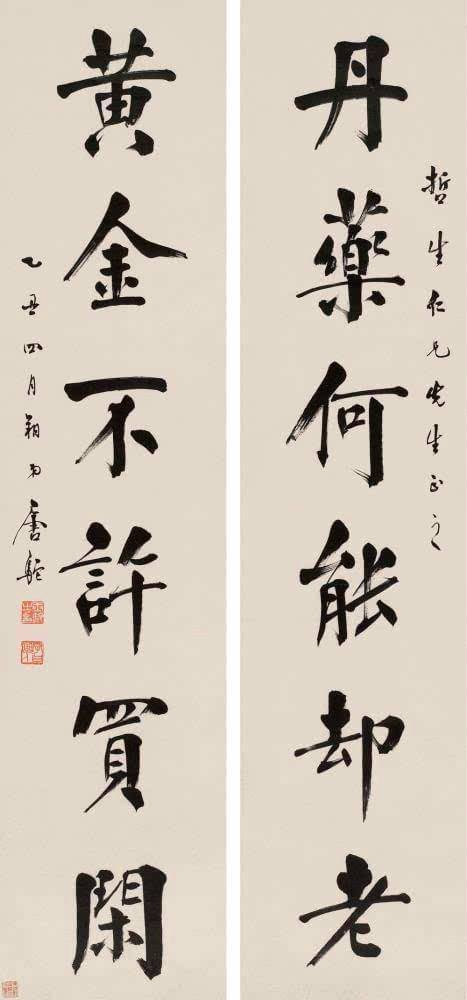 哲生仁兄先生正之
丹藥何能却老
黄金不許買閑
乙丑四月朔弟唐駝